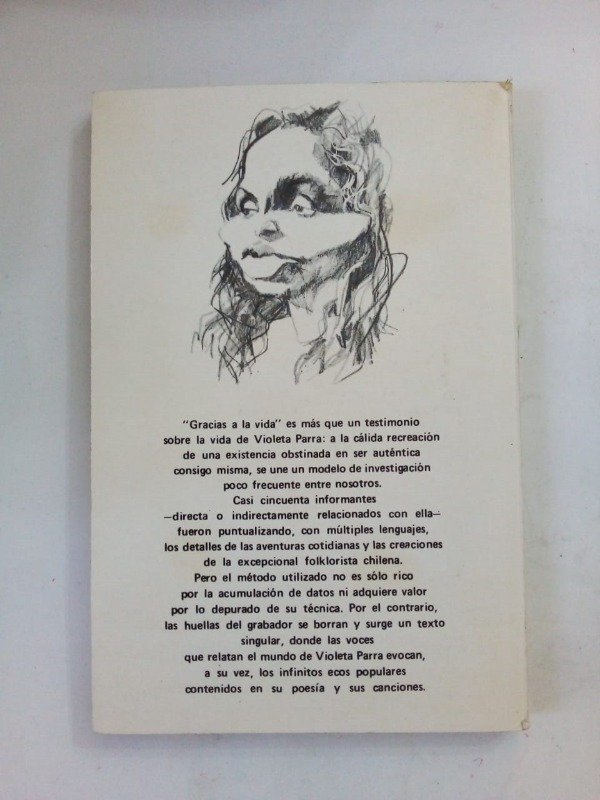 "Gracias a la vida" es más que un testimonio
sobre la vida de Violeta Parra: a la cálida recreación
de una existencia obstinada en ser auténtica
consigo misma, se une un modelo de investigación
poco frecuente entre nosotros.
Casi cincuenta informantes
—directa o indirectamente relacionados con ella—
fueron puntualizando, con múltiples lenguajes,
los detalles de las aventuras cotidianas y las creaciones
de la excepcional folklorista chilena.
Pero el método utilizado no es sólo rico
por la acumulación de datos ni adquiere valor
por lo depurado de su técnica. Por el contrario,
las huellas del grabador se borran y surge un texto
singular, donde las voces
que relatan el mundo de Violeta Parra evocan,
a su vez, los infinitos ecos populares
contenidos en su poesía y sus canciones.